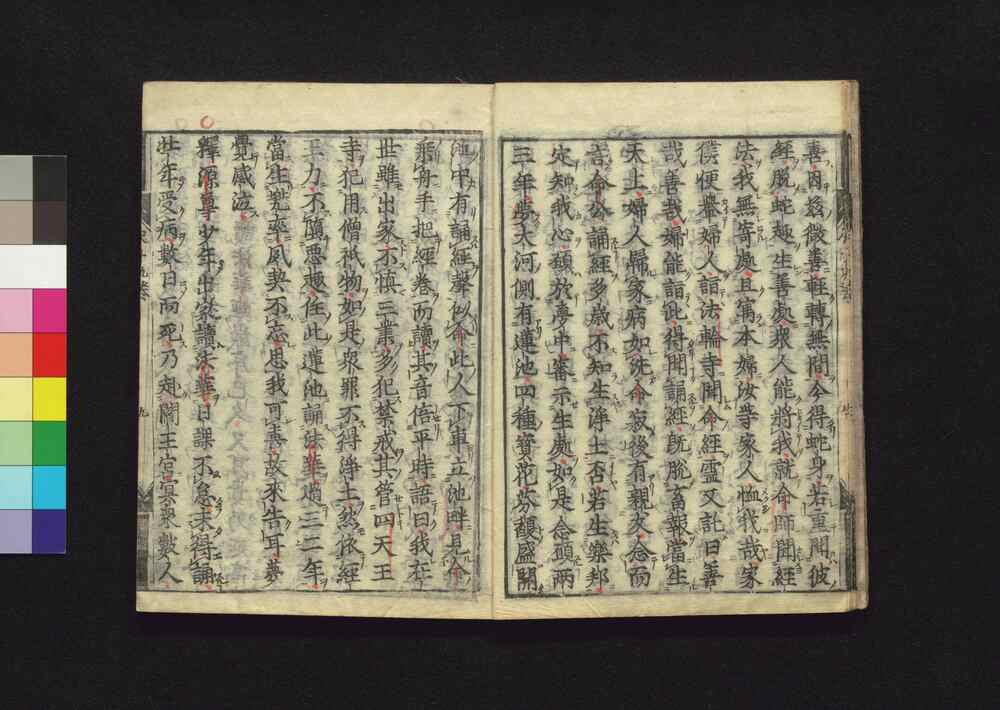 善因玆微善輕轉無間今得蛇身若重聞彼
經脱蛇趣生善處衆人能將我就命師聞經
法我無寄處且寓本婦汝等家人恤我哉家
僕便轝婦人詣法輪寺聞命經靈又託曰善
哉善哉婦能詣此得聞誦經既脱畜報當生
天上婦人歸家病如洗命寂後有親友念而
言命公誦經多歳不知生淨土否若生樂邦
定知我心願於夢中審示生處如是念願兩
三年夢大河側有蓮池四種寶花芬馥盛開
池中有誦經聲似命此人下車立池畔見命
乘舟手把經卷而讀其音倍平時語曰我在
世雖出家不愼三業多犯禁戒其管四天王
寺犯用僧祇物如是衆罪不得淨土然依經
王力不墮惡趣住此蓮池誦法華過三二年
當生兜率夙契不忘思我可喜故來告耳夢
覺感泣
釋源尊少年出家讀法華日課不怠未得誦
壯年受病數日而死乃赴閻王宮冥衆數人